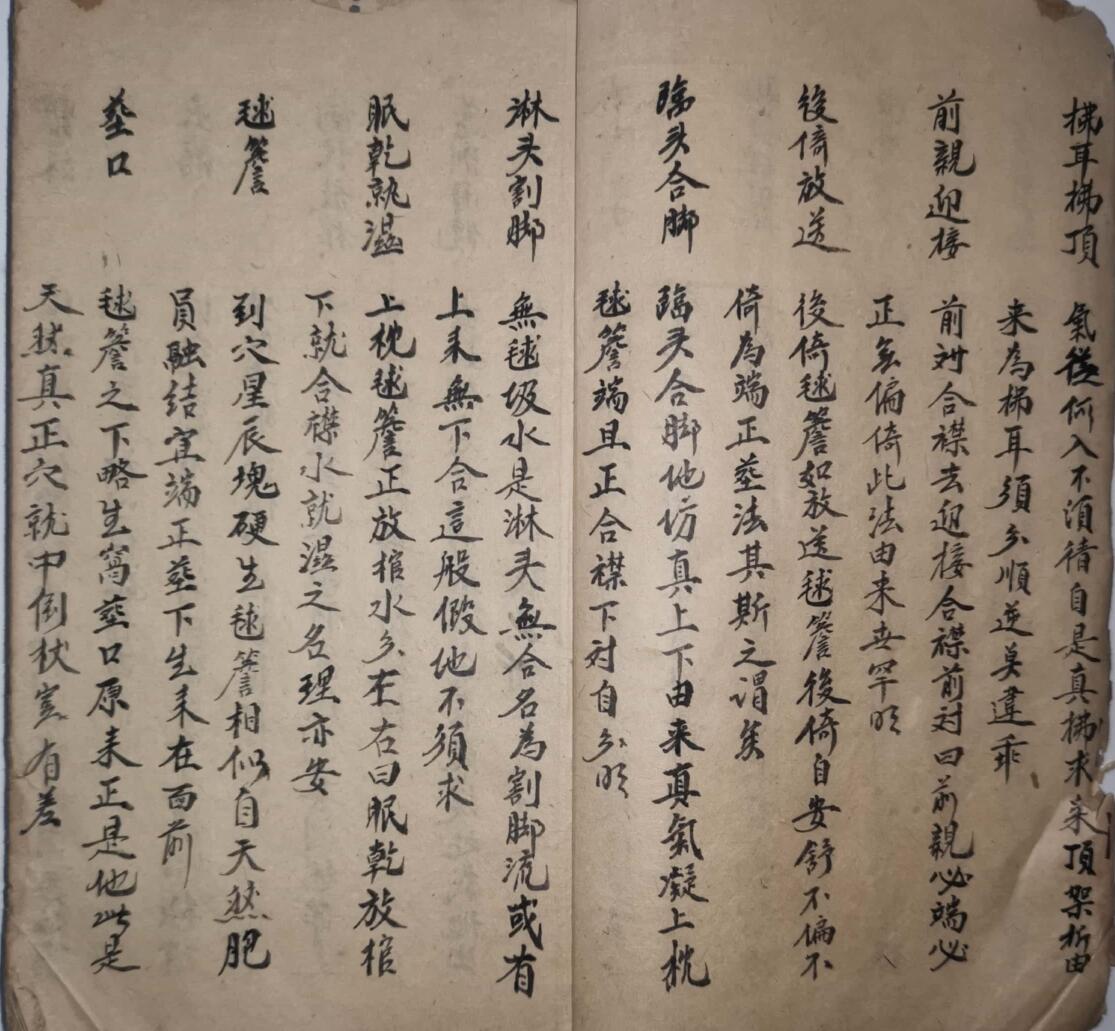 拂耳拂頂 氣從何入不須猜自是真拂求来頂架折由
来為梯耳須分順逆莫違乖
前親迎接 前対合襟去迎接合襟前対曰前親必端必
正無偏倚此法由来世罕明
後倚放送 後倚毬簷如放送毬簷後倚自安舒不偏不
倚為端正葬法其斯之谓矣
臨头合脚 臨头合脚他仿真上下由来真氣凝上枕
毬簷端且正合襟下対自分明
淋头割脚 無毬圾水是淋头無合名為割脚流或有
上来無下合這般假地不須求
眠乾就濕 上枕毬簷正放棺水分左右曰眠乾放棺
下就合襟水就濕之名理亦安
毬簷 到穴星辰塊硬生毬簷相似自天然肥
員融結宜端正葬下生来在面前
葬口 毬簷之下略生窩葬口原来正是他此是
天然真正穴就中倒杖豈有差